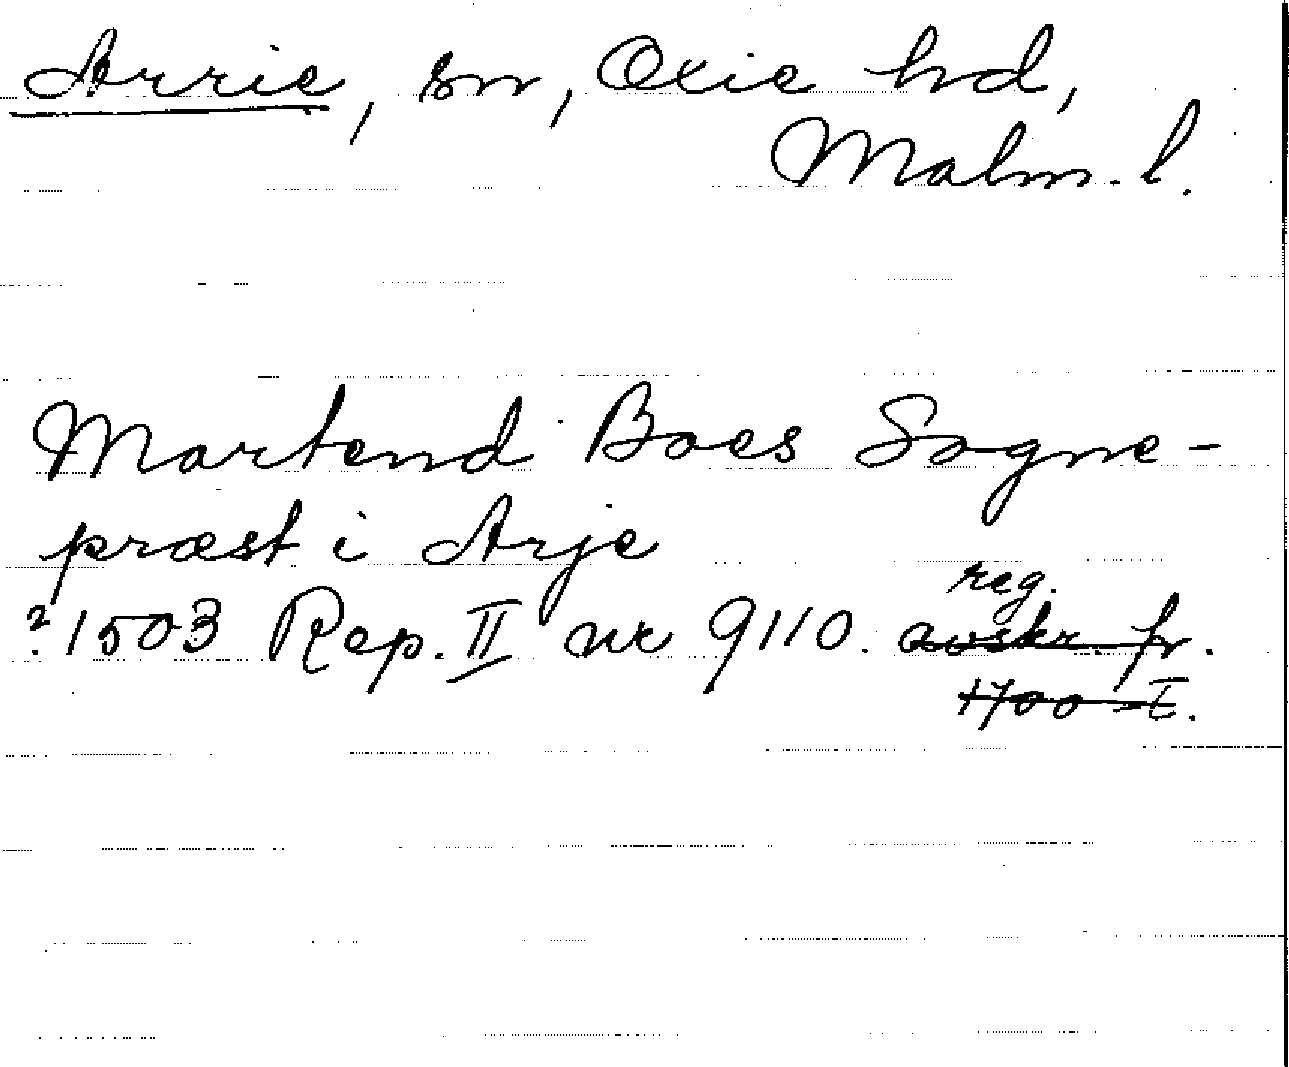 Arrie, sn, Oxie hd,
Malm. l.
Martend Boes Sogne-
præst i Arje
reg.
?1503 Rep. II nr 9110. avskr. fr.
1700-t.